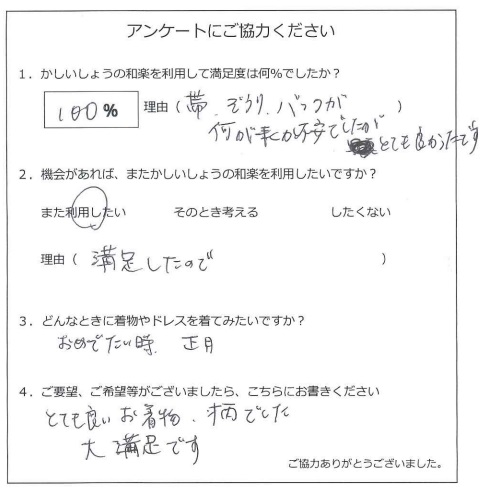 アンケートにご協力ください
1．かしいしょうの和楽を利用して満足度は何％でしたか？
100 %　理由（ 帯、ぞうり、バックが ）
何が来るか不安でしたが
とても良かったです
2．機会があれば、またかしいしょうの和楽を利用したいですか？
また利用したい　そのとき考える　したくない
理由（ 満足したので ）
3．どんなときに着物やドレスを着てみたいですか？
おめでたい時、正月
4．ご要望、ご希望等がございましたら、こちらにお書きください
とても良いお着物、柄でした
大満足です
ご協力ありがとうございました。